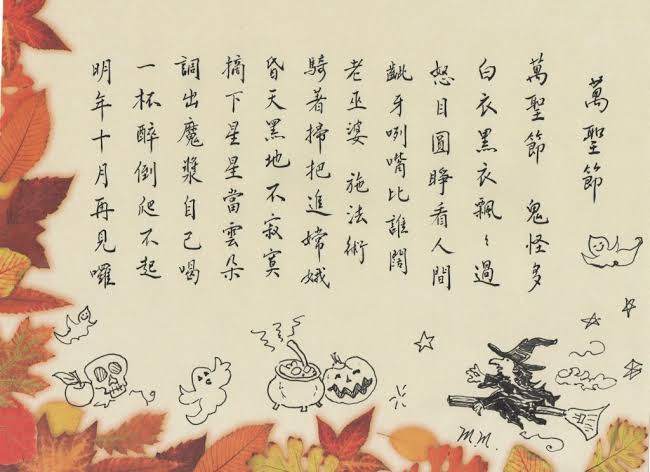 萬聖節
萬聖節 鬼怪多
白衣黑衣飄々過
怒目圓睜看人間
齜牙咧嘴比誰闊
老巫婆 施法術
騎着掃把進嫦娥
昏天黑地不寂寞
摘下星星當雲朵
調出魔漿自己喝
一杯醉倒爬不起
明年十月再見囉
M.M.